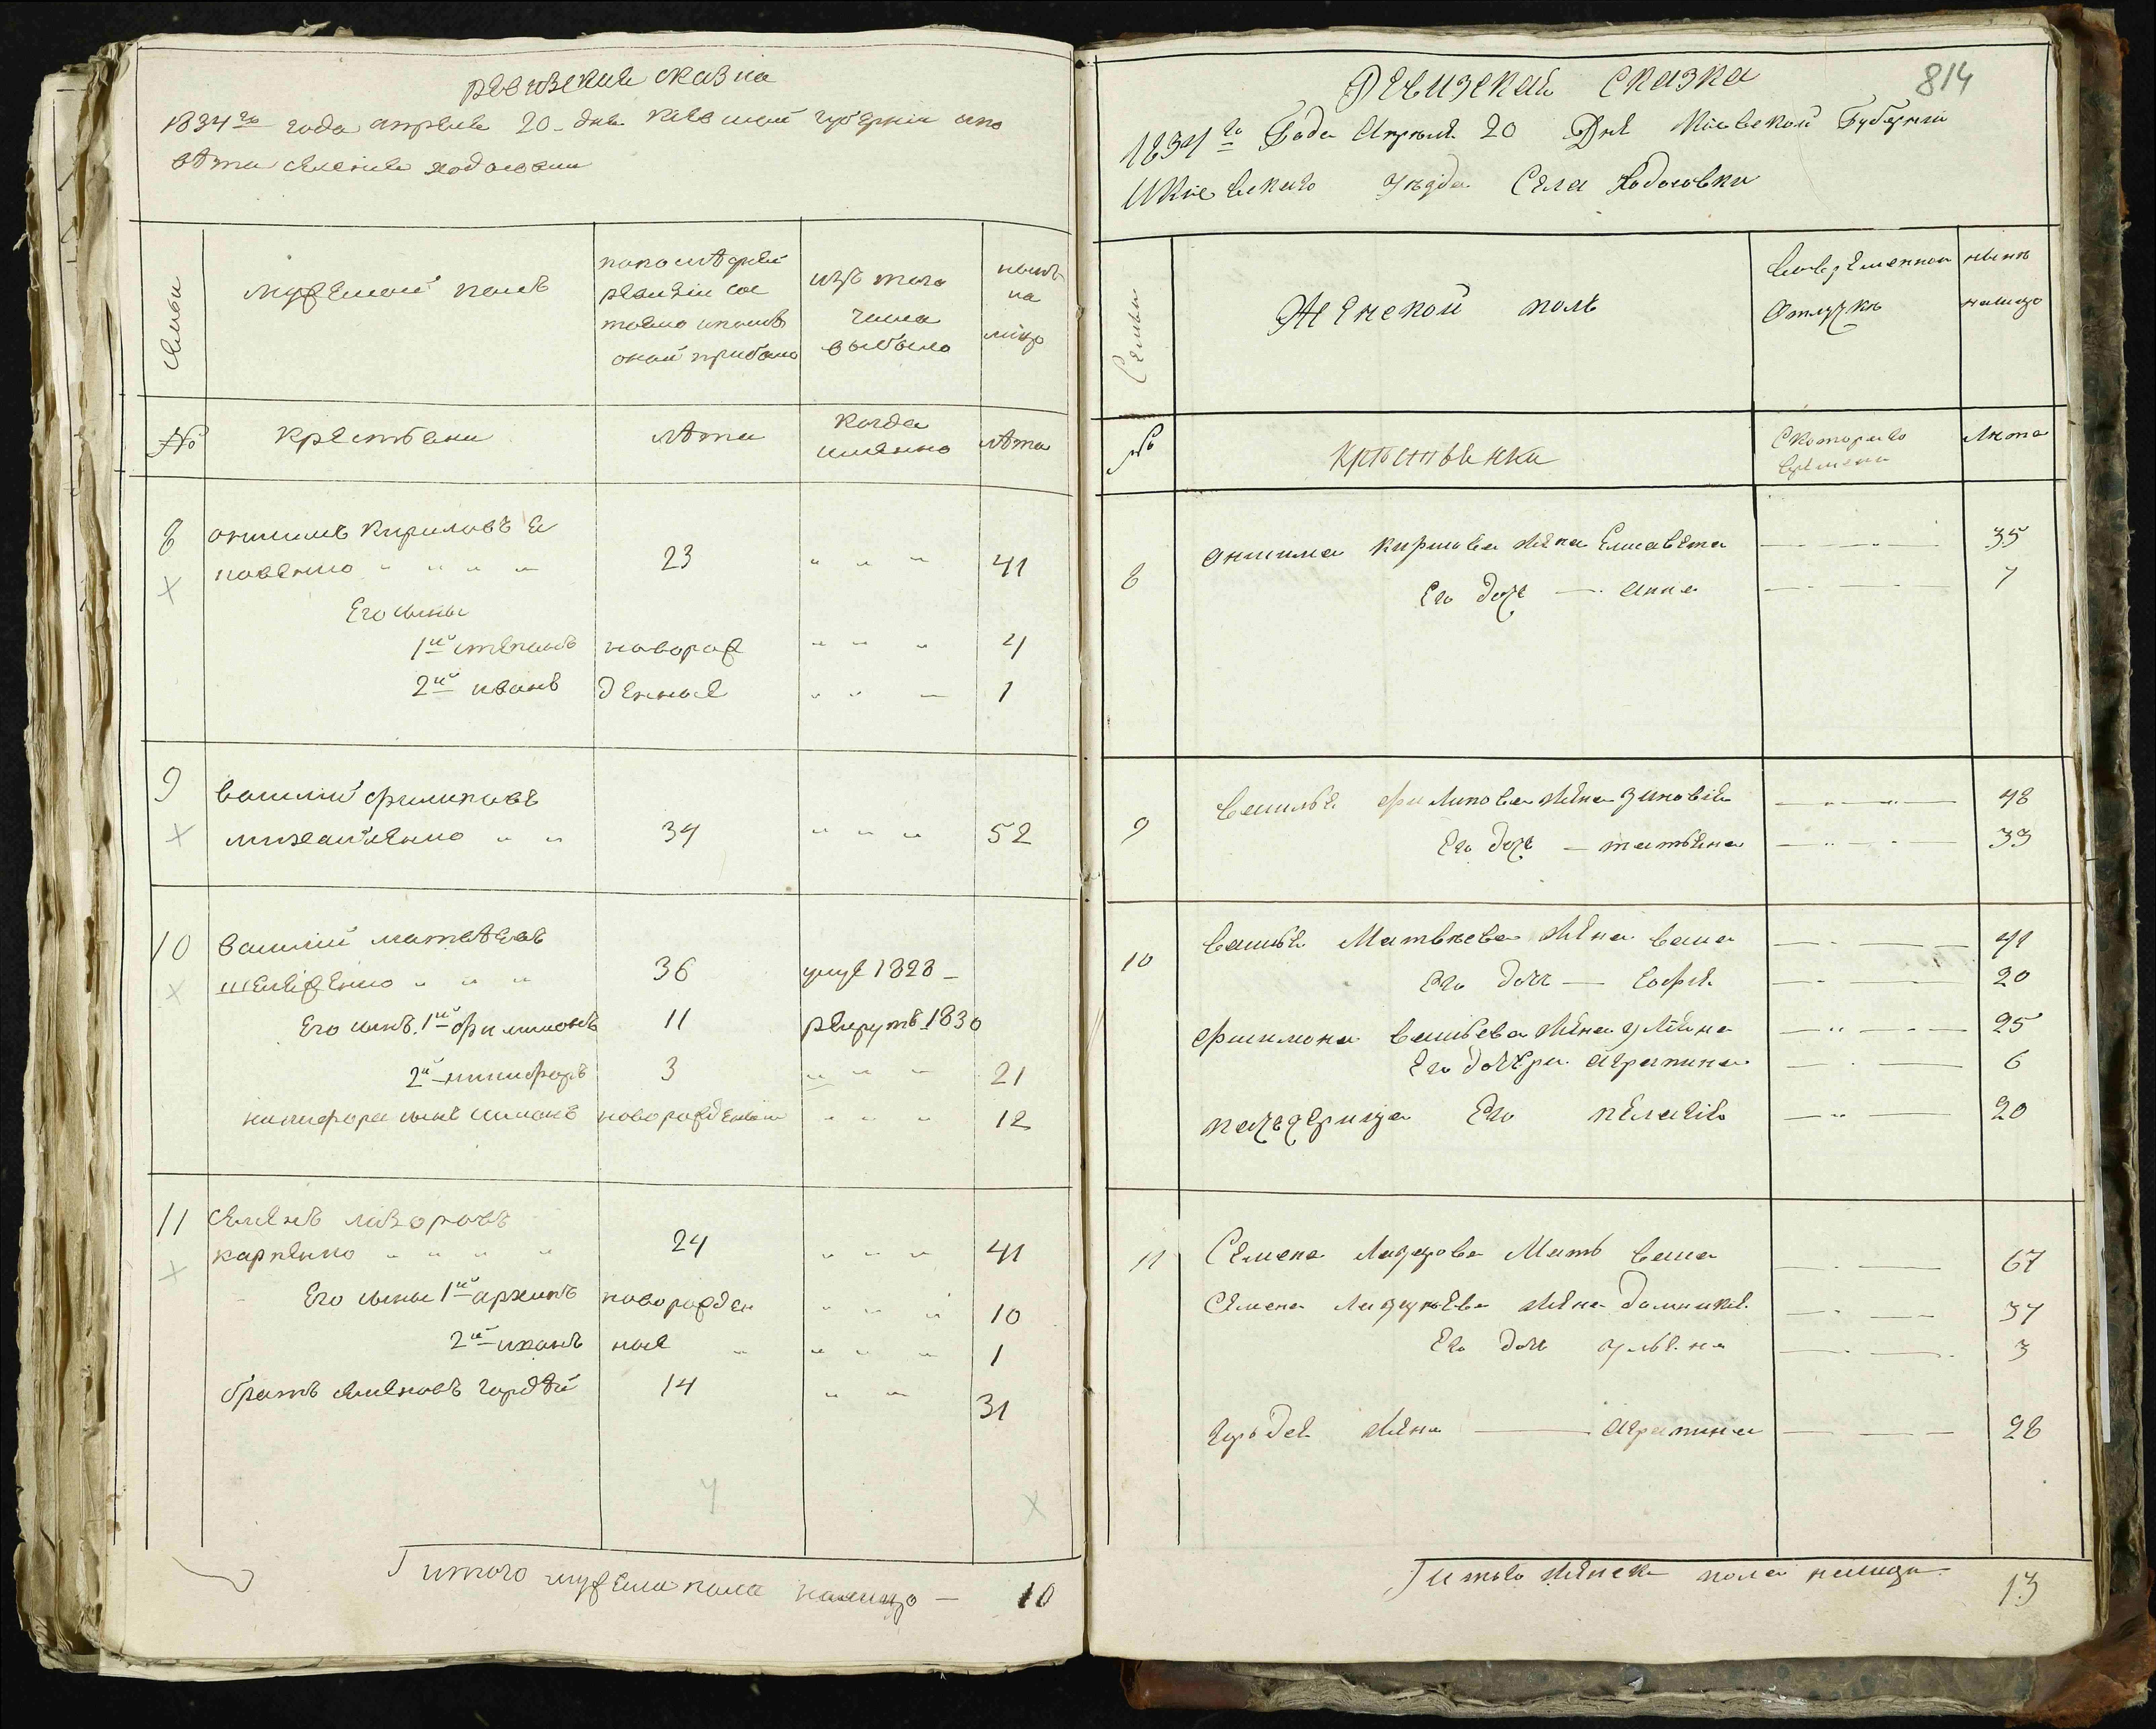 ревизская сказка
1834го года апреля 20 дня киевской губернии
селения ходосовки
семьи
мужеской полъ
по последней ревизии состояло и после оной прибыло
изъ того числа выбыло
ныне на лицо
№
крестьяни
лѣта
когда именно
лѣта
8
онисимъ кириловъ
23
41
Его сыны
1й степанъ
новорож
4
2й иванъ
денные
1
9
василий филиповъ
михайленко
34
52
10
василий матвѣевъ
36
1828
Его сынъ 1й филимонъ
11
рекрутъ 1830
2й никифоръ
3
21
никифора сынъ симонъ
новорожденный
12
11
семенъ лазоровъ
карпенко
24
41
Его сыны 1й архипъ
новорожден
10
2й иванъ
ные
1
братъ семеновъ гордѣй
14
31
итого мужеска пола налицо
10
814
Ревизская Сказка
1834го Года Апреля 20 Дня Киевской Губернии
Киевскаго уезда Села Ходосовки
Семьи
Женской полъ
во временной отлучке
ныне налицо
№
Крестьянки
С котораго времени
Лета
8
Онисима Кирилова жена Елисавета
35
Его дочь Анна
7
9
Василья Филипова жена Зиновия
48
Его дочь татьяна
33
10
Василья Матвеева жена васса
41
Его дочь софия
20
Филимона васильева жена улияна
25
Его дочери Агрипина
6
падчерица Его пелагия
20
11
Семена Лазорова Мать васса
67
Семена жена домникия
37
Его дочь ульяна
3
Гордея жена Агрипина
28
Итого женска пола налицо
13